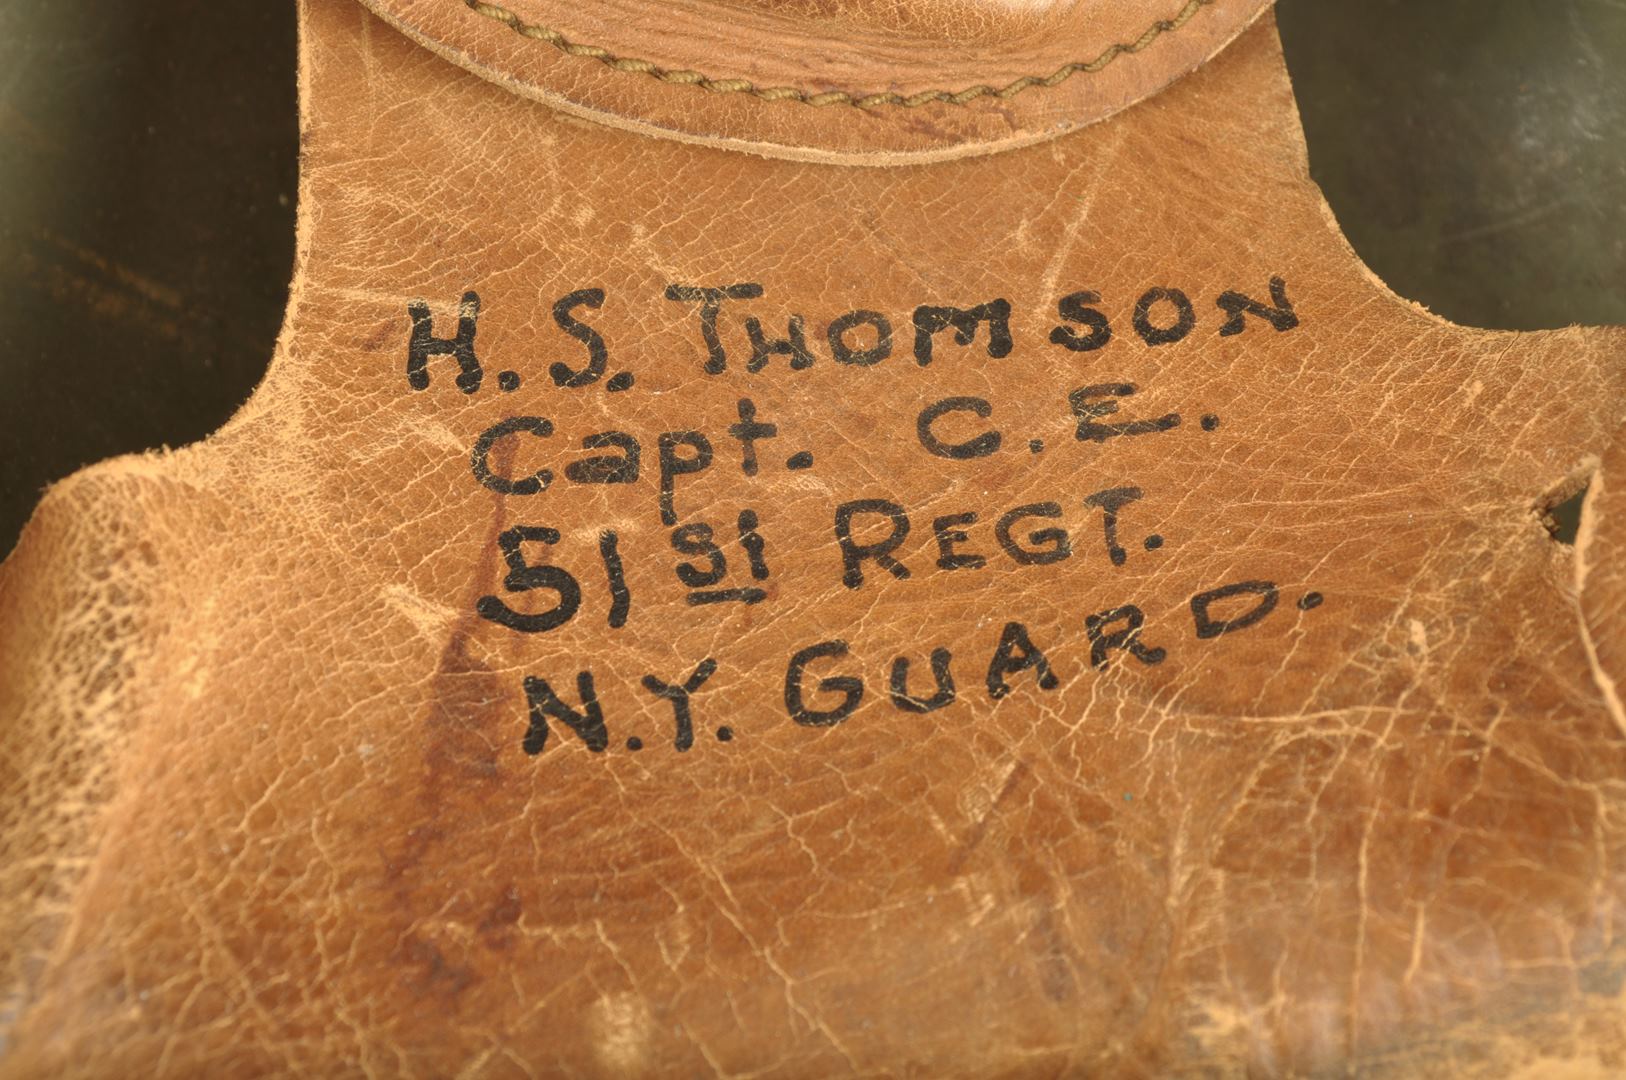 H. S. THOMSON
Capt. C. E.
51st REGT.
N.Y. GUARD.